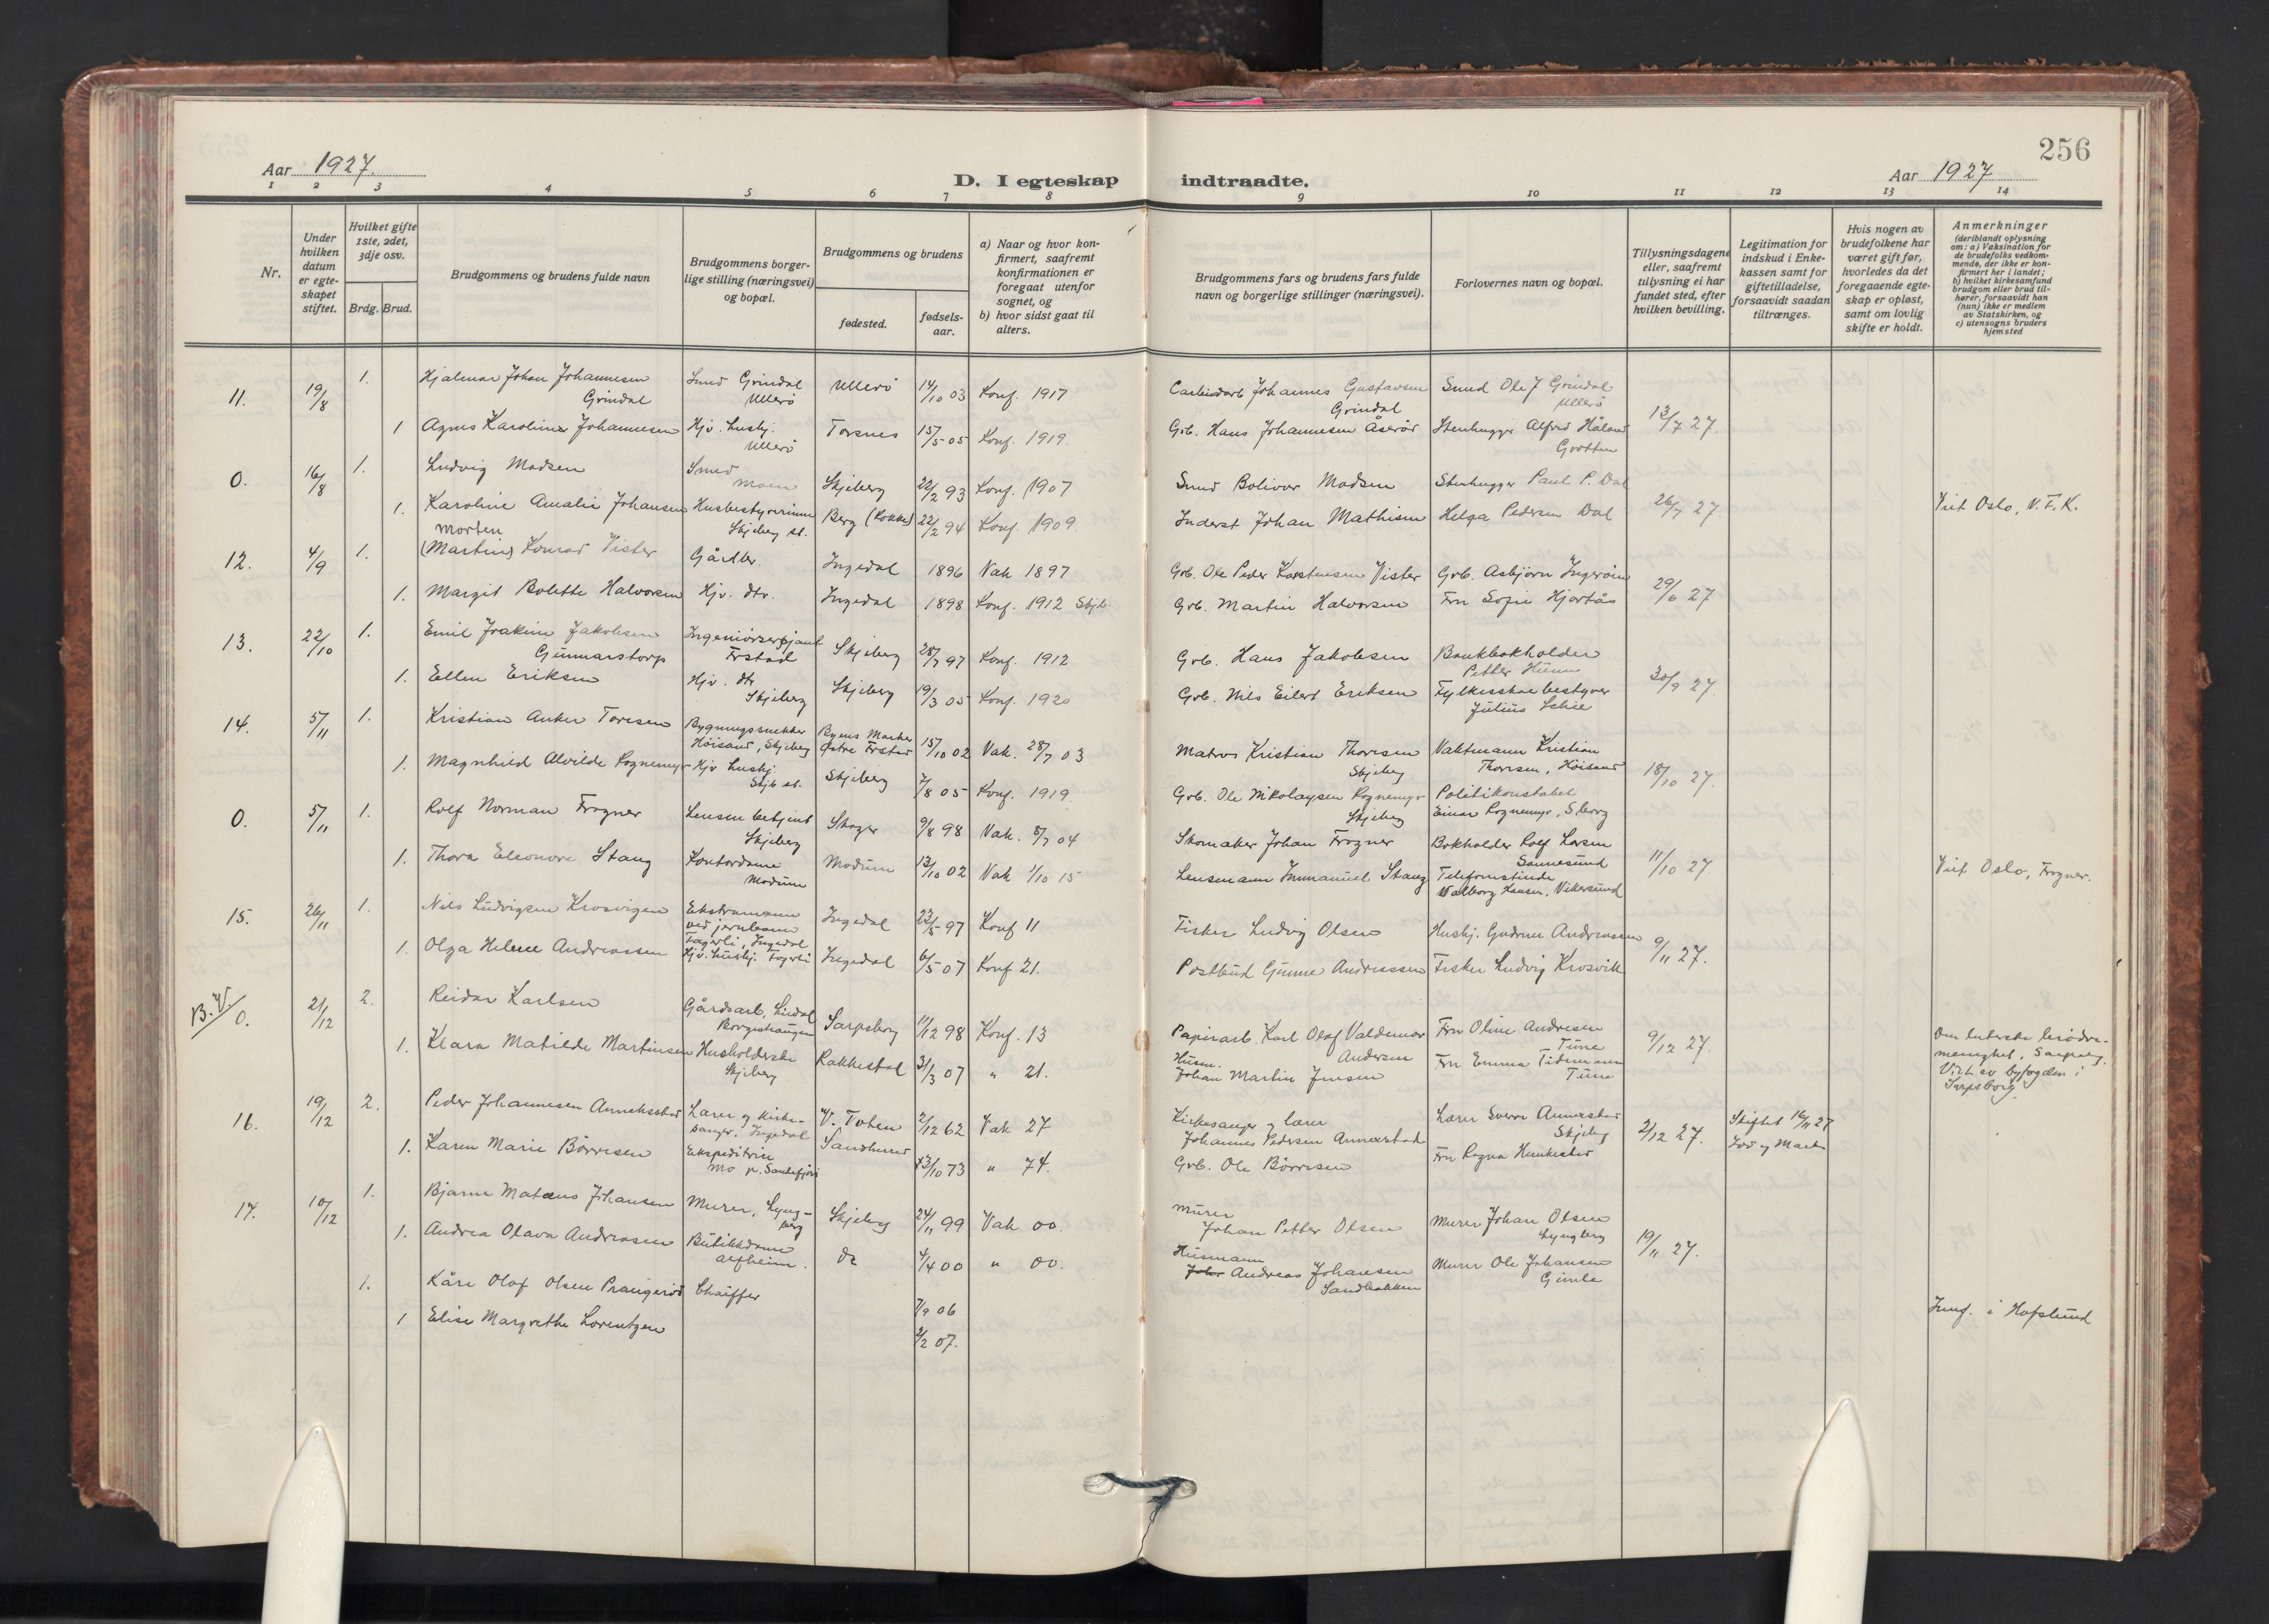 256
Aar 1927.
D. I egteskap indtraadte.
Aar 1927
1 2 3 4 5 6 7 8 9 10 11 12 13 14
Nr.
Under hvilken datum er egteskapet stiftet.
Hvilket gifte 1ste, 2det, 3dje osv.
Brdg. Brud.
Brudgommens og brudens fulde navn
Brudgommens borgerlige stilling (næringsvei) og bopæl.
Brudgommens og brudens
fødested.
fødselsaar.
a) Naar og hvor konfirmert, saafremt konfirmationen er foregaat utenfor sognet, og
b) hvor sidst gaat til alters.
Brudgommens fars og brudens fars fulde navn og borgerlige stillinger (næringsvei).
Forlovernes navn og bopæl.
Tillysningsdagene eller, saafremt tillysning ei har fundet sted, efter hvilken bevilling.
Legitimation for indskud i Enkekassen samt for giftetilladelse, forsaavidt saadan tiltrænges.
Hvis nogen av brudefolkene har været gift før, hvorledes da det foregaaende egteskap er opløst, samt om lovlig skifte er holdt.
Anmerkninger
(deriblandt oplysning om: a) Vaksination for de brudefolks vedkommende, der ikke er konfirmert her i landet; b) hvilket kirkesamfund brudgom eller brud tilhører, forsaavidt han (hun) ikke er medlem av Statskirken, og c) utensogns bruders hjemsted
11. 19/8 1. Hjalmar Johan Johannesen Grindal Smed Grindal Ullerö Ullerö 14/10 03 Konf. 1917 Carbidarb Johannes Gustavsen Grindal Smed Ole J Grindal Ullerö
1 Agnes Karoline Johannesen Hjv. hushj. Ullerö Torsnes 15/5 05 Konf. 1919. Grb. Hans Johannesen Åserød Stenhugger Alfred Håland Grotten 13/7 27.
0. 16/8 1. Ludvig Madsen Smed Moen Skjeberg 22/2 93 Konf. 1907 Smed Bolivar Madsen Stenhugger Paul P. Dal
1. Karoline Amalie Johansen Husbestyrerinne Skjeberg st. Berg (Rokke) 22/2 94 Konf. 1909. Inderst Johan Mathisen Helga Pedersen Dal 26/7 27. Viet Oslo, V.F.K.
12. 4/9 1. Morten (Martin) Konrad Vister Gårdbr. Ingedal 1896 Vak 1897 Grb. Ole Peder Karstensen Vister Grb. Asbjørn Ingeröen
1. Margit Bolette Halvorsen Hjv. dtr. Ingedal 1898 Konf. 1912 Skjb. Grb. Martin Halvorsen Fru Sofie Hjortås 29/6 27
13. 22/10 1. Emil Joakim Jakobsen Gunnarstorp Ingeniörsersjant Frstad Skjeberg 28/7 97 Konf. 1912 Grb. Hans Jakobsen Bankbokholder Petter Hunn
1. Ellen Eriksen Hjv. dtr Skjeberg Skjeberg 19/3 05 Konf. 1920 Grb. Nils Eilert Eriksen Fylkesskoebestyrer Julius Schie 30/9 27
14. 5/11 1. Kristian Anker Toresen Bygningssnekker Höisand, Skjeberg Byens Marker Östre Frstad 15/10 02 Vak. 28/7 03 Matros Kristian Thoresen Skjeberg Vaktmann Kristian Thoresen, Höisand
1. Magnhild Alvilde Rognemyr Hjv hushj. Skjb st. Skjeberg 7/8 05 Konf. 1919. Grb. Ole Nikolaysen Rognemyr Skjeberg Politikonstabel Einar Rognemyr, Sborg 18/10 27.
0. 5/11 1. Rolf Norman Frogner Lensm betjent Skjeberg Skoger 9/8 98 Vak. 8/7 04 Skomaker Johan Frogner Bokholder Rolf Larsen Sannesund
1. Thora Eleonore Stang Kontordame Modum Modum 13/10 02 Vak 1/10 15 Lensmann Immanuel Stang Telefonistinde Valborg Hansen, Vikersund 11/10 27. Viet Oslo, Frogner.
15. 26/11 1. Nils Ludvigsen Krosvigen Ekstramann ved jernbanen Fagerli, Ingedal Ingedal 23/5 97 Konf 11 Fisker Ludvig Olsen Hushj. Gudrun Andreassen
1. Olga Helene Andreassen Hjv. hushj. Fagerli Ingedal 6/5 07 Konf 21. Postbud Gunne Andreassen Fisker Ludvig Krosvik 9/11 27.
B.V. 0. 21/12 2. Reidar Karlsen Gårdsarb. Lindal Borgeshaugen Sarpsborg 11/12 98 Konf. 13 Papirarb. Karl Olaf Valdemar Andersen Fru Oline Andresen Tune
1. Klara Matilde Martinsen Husholderske Skjeberg Rakkestad 31/3 07 " 21. Husm. Johan Martin Jensen Fru Emma Tidemann Tune 9/12 27. Den luterske brödremenighet, Sarpsborg. Viet av byfogden i Sarpsborg
16. 19/12 2. Peder Johannesen Annekstad Lærer og kirkesanger, Ingedal V. Toten 2/12 62 Vak 27 Kirkesanger og lærer Johannes Pedersen Anneestad Lærer Sverre Anneestad Skjeberg
1. Karen Marie Börresen Ekspeditrise Mo p. Sandefjord Sandherred 13/10 73 " 74. Grb. Ole Börresen Fru Ragna 2/12 27. Skiftet 16/11 27
17. 10/12 1. Bjarne Mataus Johansen Murer, Lyngberg Skjeberg 24/11 99 Vak 00. Murer Johan Petter Olsen Murer Johan Olsen Lyngberg
1. Andrea Olava Andreasen Butikkdame Alfheim. do 4/4 00 " 00. Husmann Johs Andreas Johansen Sandbakken Murer Ole Johansen Gimle 19/11 27.
1. Kåre Olaf Olsen Prangeröd Chauffør 7/9 06
1 Elise Margrethe Lorentzen 2/2 07. Jmf. i Hafslund